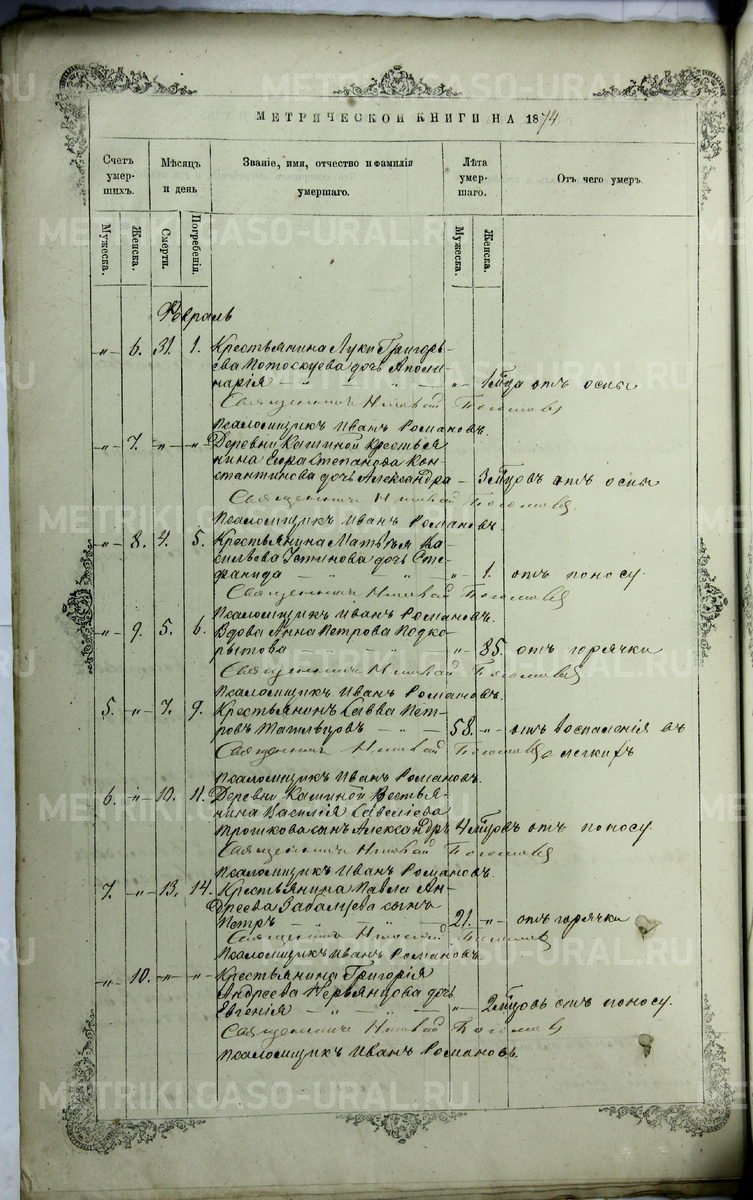 МЕТРИЧЕСКОЙ КНИГИ НА 1874
Счетъ умерших. Мѣсяцъ и день Званіе, имя, отчество и фамилія умершаго. Лѣта умершаго. Отъ чего умеръ.
Мужеска. Женска. Смерти. Погребенія. Мужеска. Женска.
Февраль
„ 6. 31. 1. Крестьянина Луки Григорь-
ева Потоскуева дочь Аполи-
нарія „ „ „ 1 года отъ оспы
Священникъ Николай
Псаломщикъ Иванъ Романовъ.
„ 7. „ „ Деревни Кашиной крестья
нина Егора Степанова Кон-
стантинова дочь Александра 3 мѣсцовъ отъ оспы
Священникъ Николай
Псаломщикъ Иванъ Романовъ.
„ 8. 4. 5. Крестьянина Матвѣя Ва-
сильева Устинова дочь Сте-
фанида „ „ „ 1. отъ поносу.
Священникъ Николай
Псаломщикъ Иванъ Романовъ.
„ 9. 5. 6. Вдова Анна Петрова Подко-
рытова „ 85. отъ горячки
Священникъ Николай
Псаломщикъ Иванъ Романовъ.
5. „ 7. 9. Крестьянинъ Савва Пет-
ровъ 58. „ отъ воспаленія въ
Священникъ Николай легкихъ
Псаломщикъ Иванъ Романовъ.
6. „ 10. 11. Деревни Кашиной крестья-
нина Василія Савеліева
Трошкова сынъ Александръ 4 мѣсцовъ отъ поносу.
Священникъ Николай
Псаломщикъ Иванъ Романовъ.
7. „ 13. 14. Крестьянина Павла Ан-
дреева сынъ
Петръ „ „ 21. „ отъ горячки
Священникъ Николай
Псаломщикъ Иванъ Романовъ.
„ 10. „ „ Крестьянина Григорія
Андреева дочь
Евгенія „ „ „ 2 мѣсцовъ отъ поносу.
Священникъ Николай
Псаломщикъ Иванъ Романовъ.
METRIKI.GASO-URAL.RU